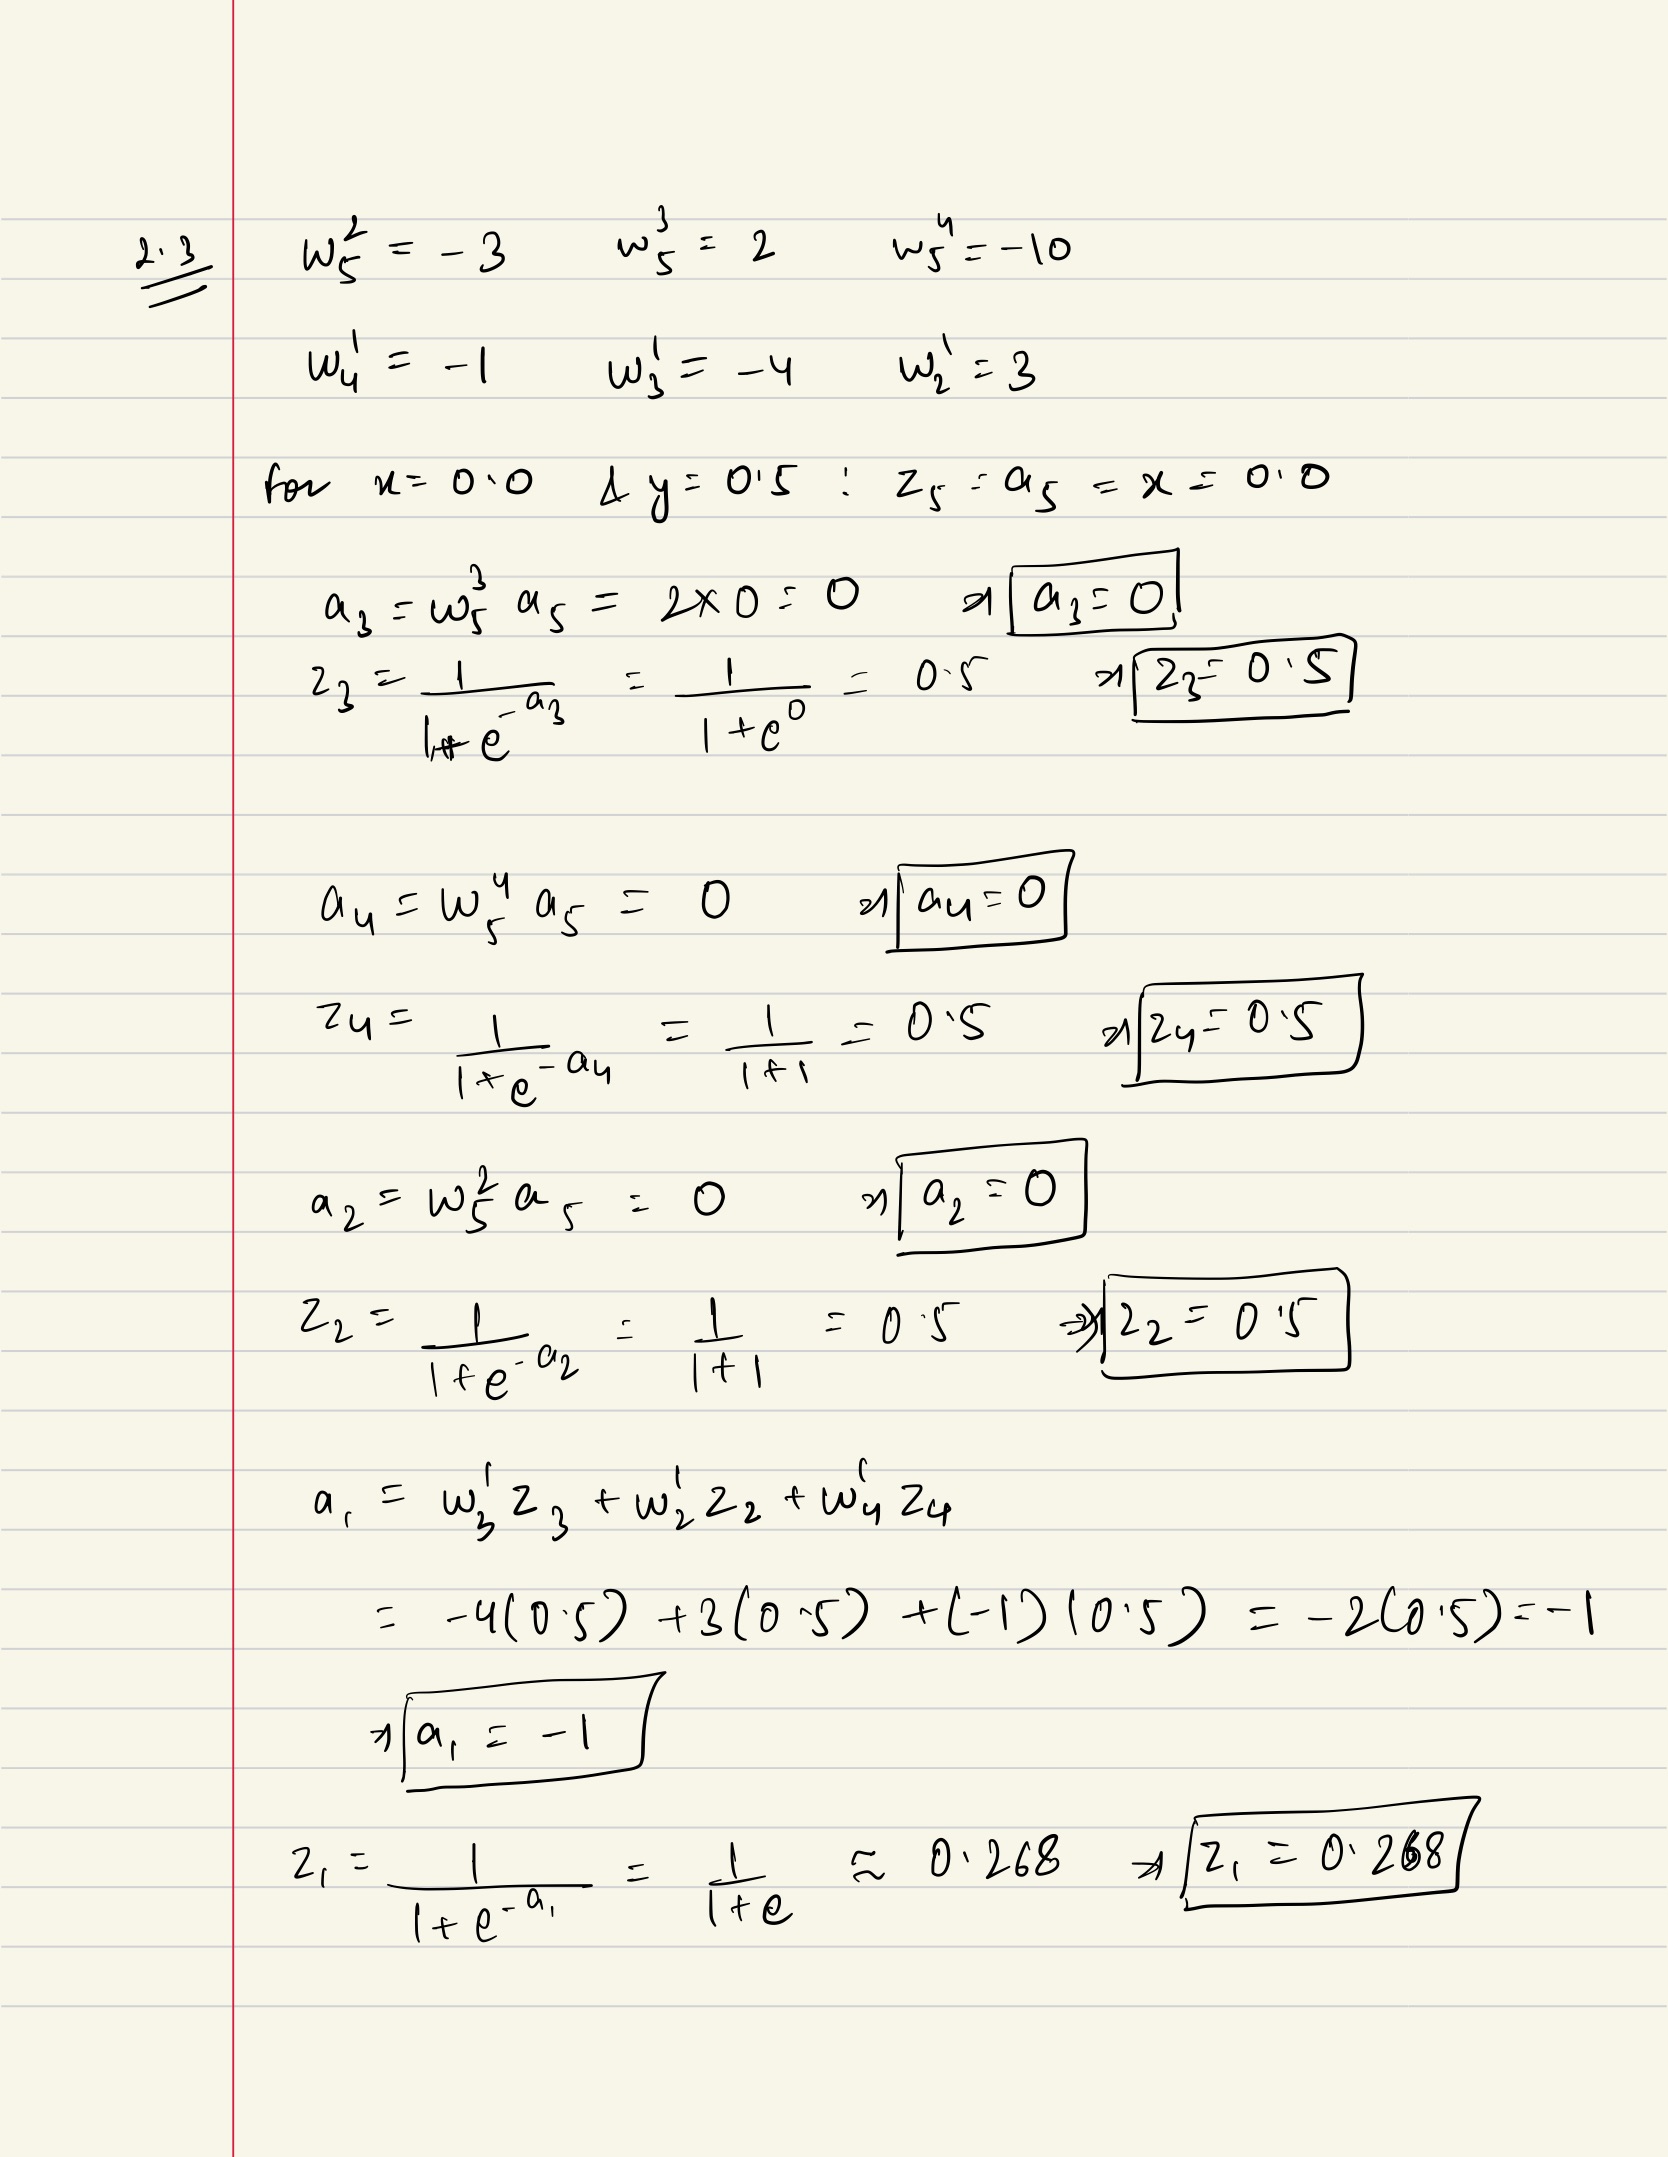 2.3 w₅² = -3 w₅³ = 2 w₅⁴ = -10
w₄¹ = -1 w₃¹ = -4 w₂¹ = 3
for x = 0.0 & y = 0.5 : z₅ = a₅ = x = 0.0
a₃ = w₅³ a₅ = 2×0 = 0 ⇒ a₃ = 0
z₃ = 1/(1+e^(-a₃)) = 1/(1+e⁰) = 0.5 ⇒ z₃ = 0.5
a₄ = w₅⁴ a₅ = 0 ⇒ a₄ = 0
z₄ = 1/(1+e^(-a₄)) = 1/(1+1) = 0.5 ⇒ z₄ = 0.5
a₂ = w₅² a₅ = 0 ⇒ a₂ = 0
z₂ = 1/(1+e^(-a₂)) = 1/(1+1) = 0.5 ⇒ z₂ = 0.5
a₁ = w₃¹ z₃ + w₂¹ z₂ + w₄¹ z₄
= -4(0.5) +3(0.5) +(-1)(0.5) = -2(0.5) = -1
⇒ a₁ = -1
z₁ = 1/(1+e^(-a₁)) = 1/(1+e) ≈ 0.268 ⇒ z₁ = 0.268